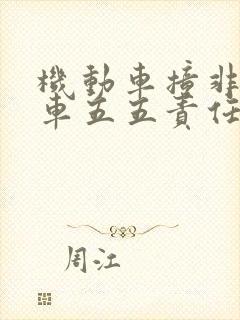 機動車撞非
車五五責任
周江